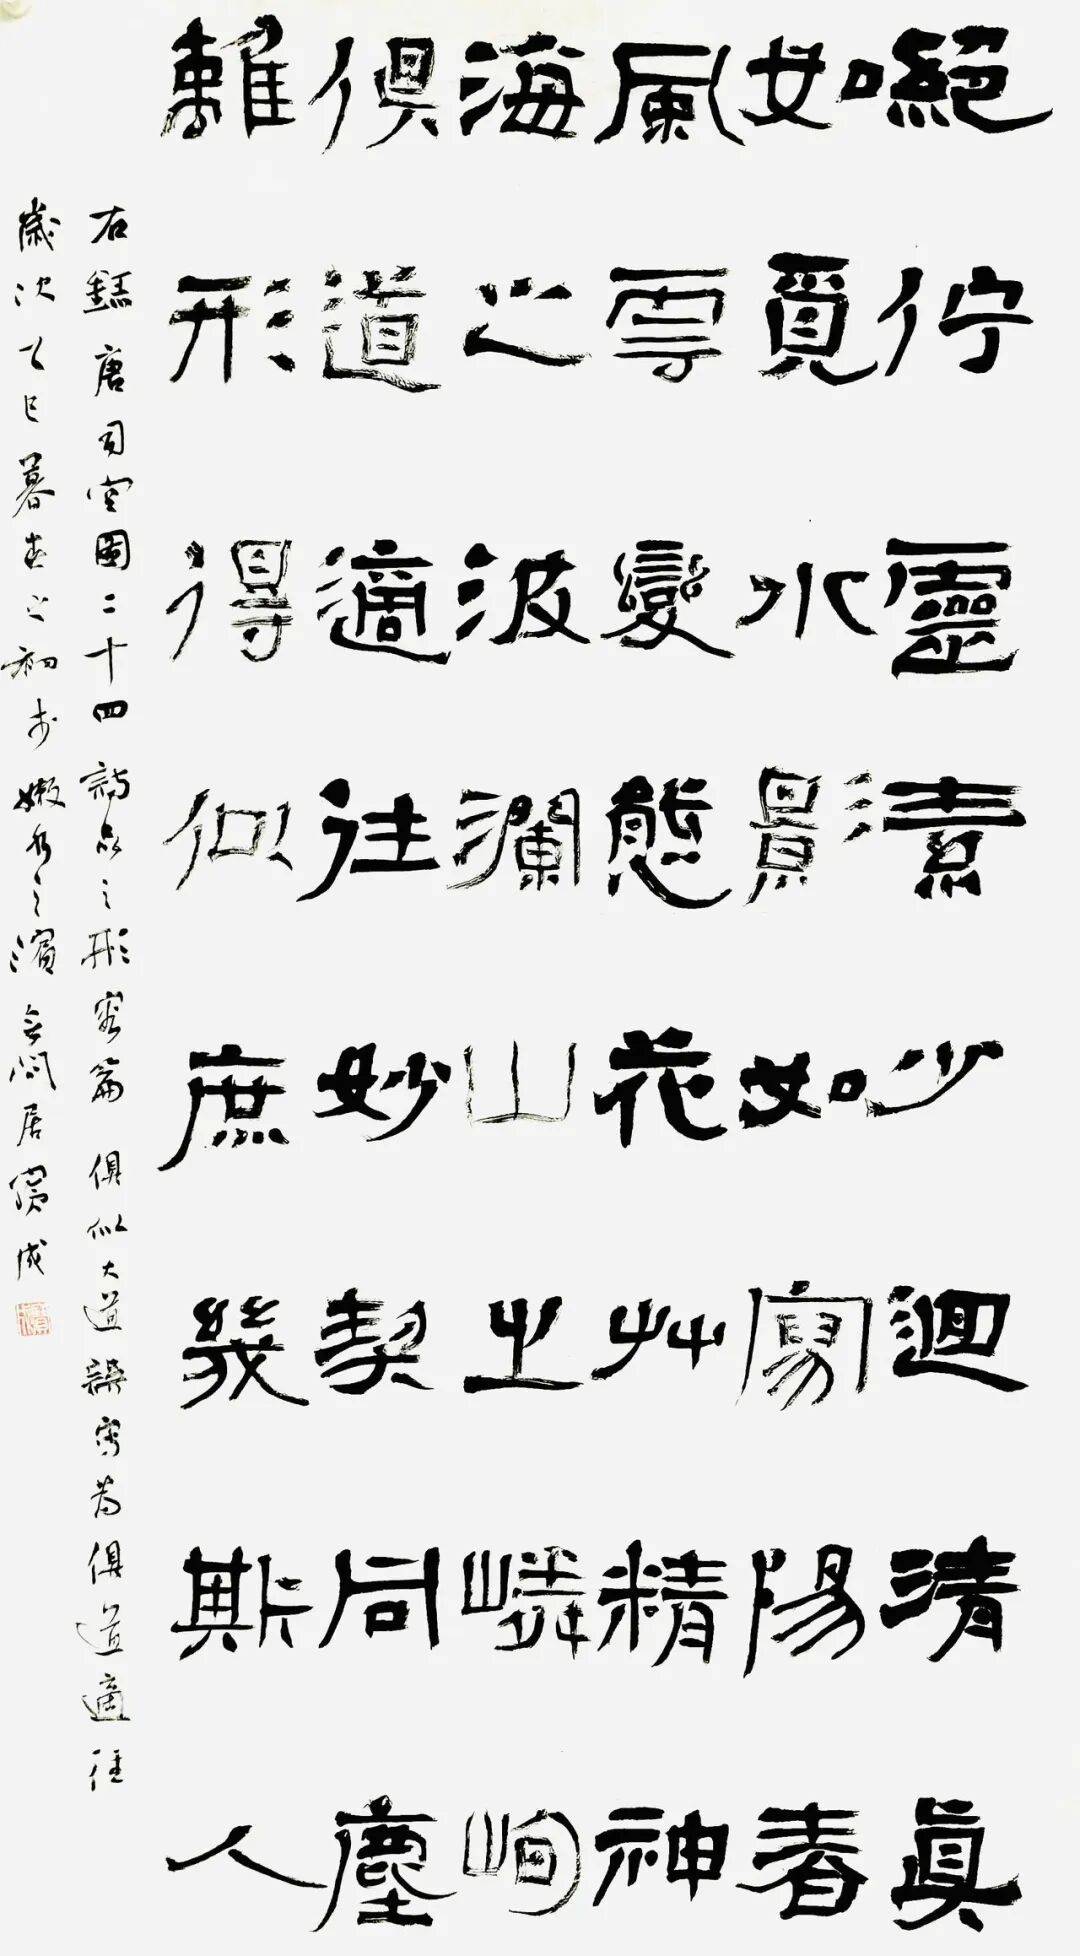 絕佇靈素少迴清眞
如覓水影如寫陽春
風雲變態花艸精神
海之波瀾山之嶙峋
俱道適往妙契同塵
離形得似庶幾斯人
右錄唐司空圖二十四詩品之形容篇 俱似大道誤寫為俱道適往
歲次乙巳暮春之初於嫩水之濱無問居成